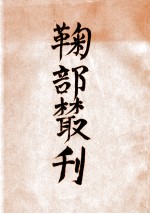 鞠部叢刊